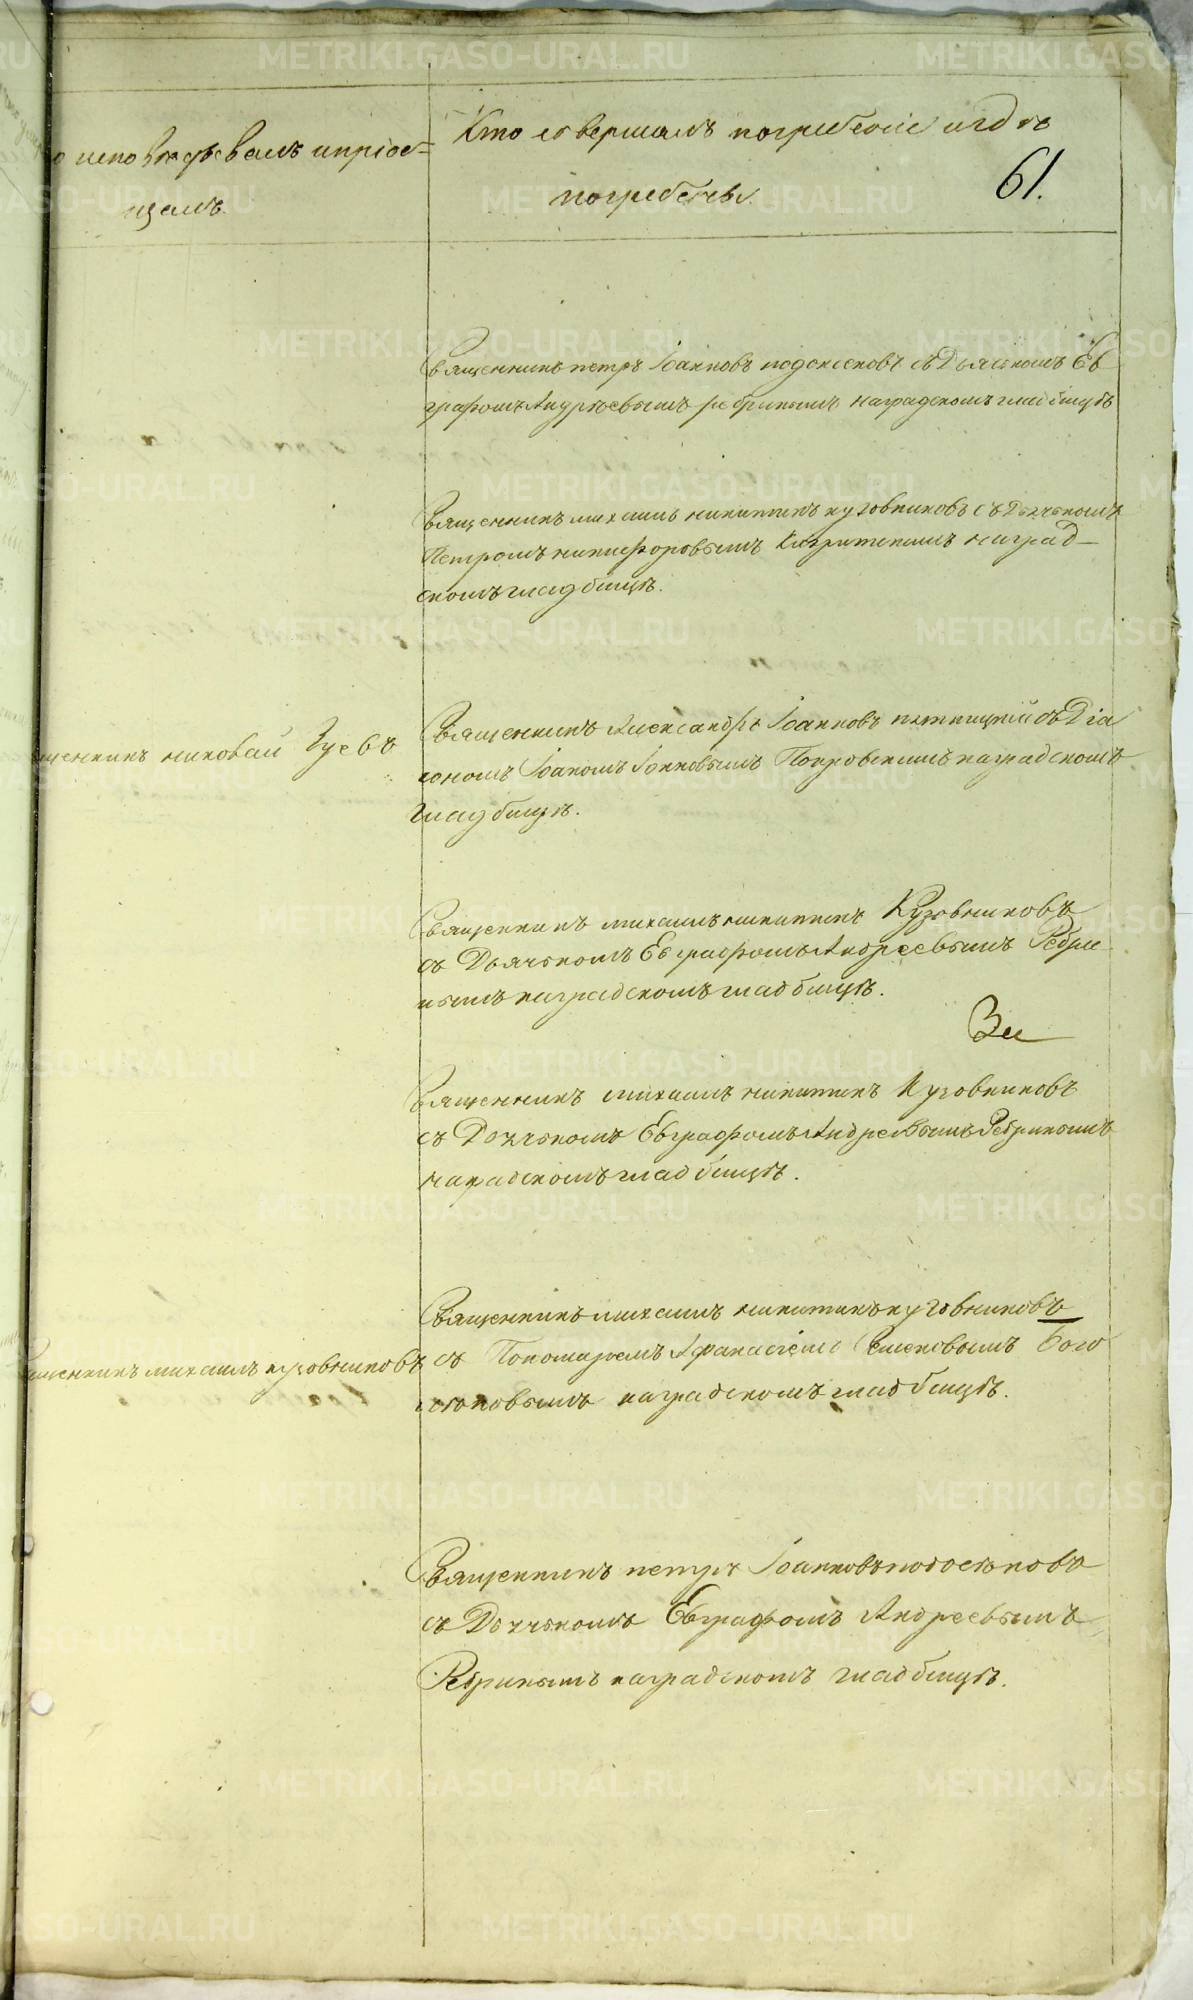 исповѣдывалъ и пріоб=
щалъ.
Кто совершалъ погребеніе и гдѣ
погребены.
61.
Священникъ петръ Іоанновъ подосеновъ съ Дьячкомъ Ев
графомъ Андрѣевымъ ребринымъ на градскомъ кладбищѣ
Священникъ михаилъ никитинъ кузовниковъ съ Дьячкомъ
Петромъ никифоровымъ на град-
скомъ кладбищѣ.
Священникъ николай Зуевъ
Священникъ Александръ Іоанновъ пятницкій съ Діа
кономъ Іоаномъ Іоанновымъ Покровскимъ на градскомъ
кладбищѣ.
Священникъ михаилъ никитинъ Кузовниковъ
съ Дьячкомъ Евграфомъ Андреевымъ Ребри-
нымъ на градскомъ кладбищѣ.
Зи
Священникъ михаилъ никитинъ Кузовниковъ
съ Дьячкомъ Евграфомъ Андреевымъ Ребринымъ
на градскомъ кладбищѣ.
Священникъ михаилъ никитинъ кузовниковъ
Священникъ михаилъ кузовниковъ
съ Пономаремъ Афанасіемъ Семеновымъ Бого
словымъ на градскомъ кладбищѣ.
Священникъ петръ Іоанновъ подосѣновъ
съ Дьячкомъ Евграфомъ Андреевымъ
Ребринымъ на градскомъ кладбищѣ.
METRIKI.GASO-URAL.RU